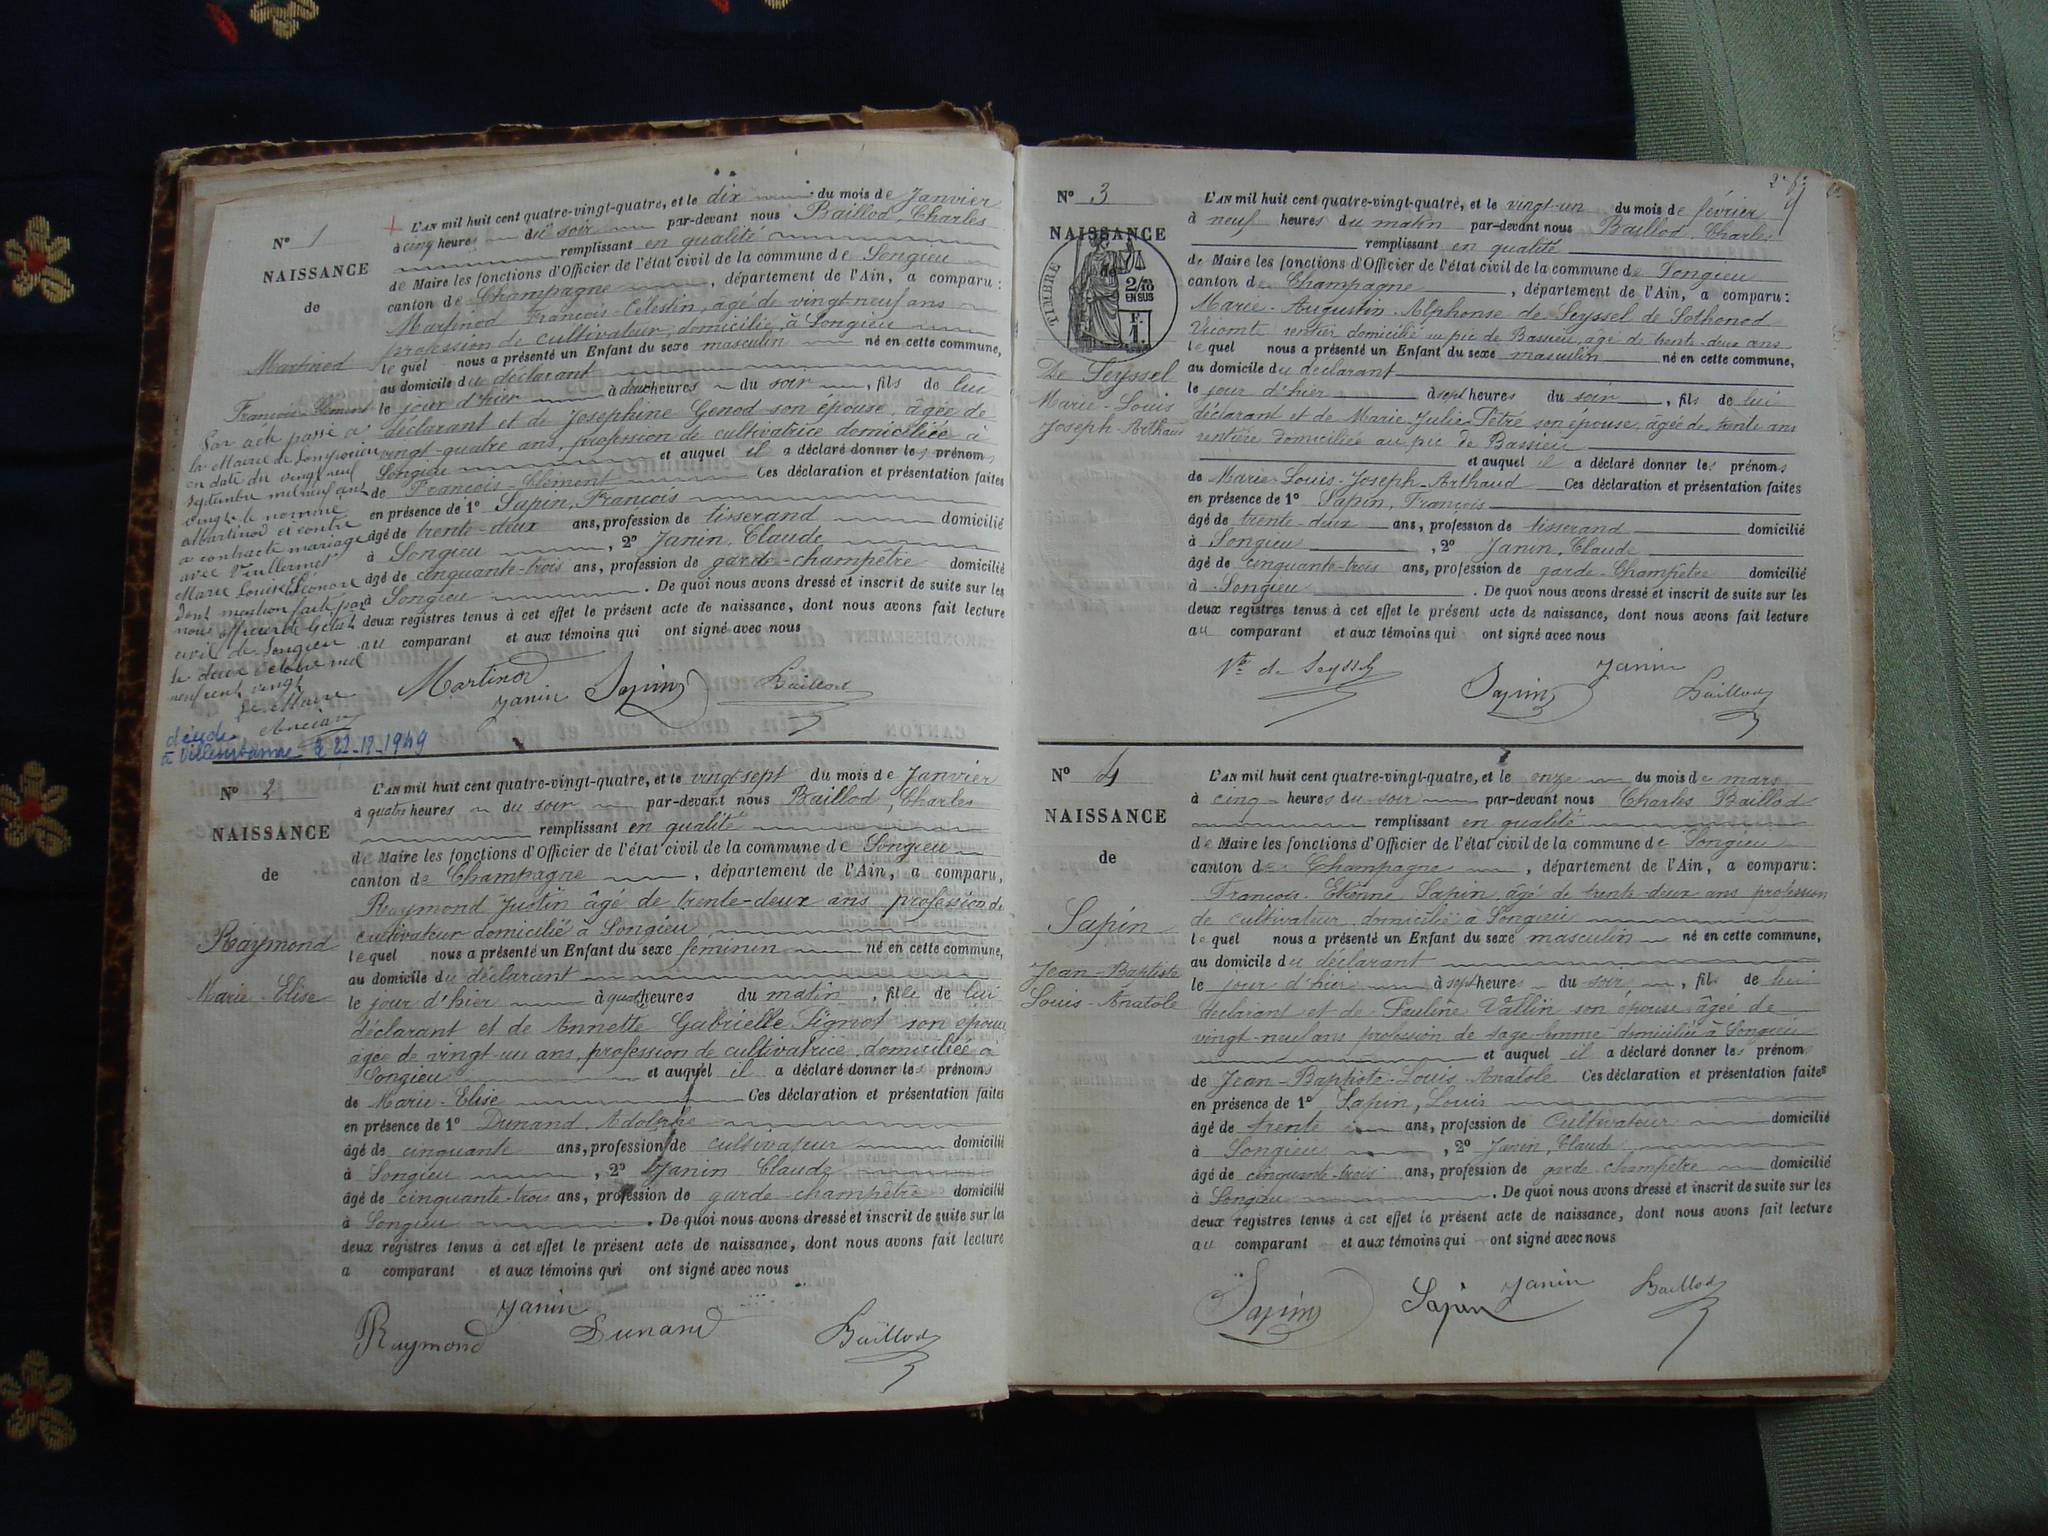 N° 1
NAISSANCE
de
Martinod
François-Clément
Par acte passé à
la Mairie de
en date du vingt neuf
septembre mil neuf cent
vingt le nommé
Martinod ci contre
a contracté mariage
avec Vuillermet
Marie Louise Eléonore
dont mention faite par
nous officier de l'état
civil de Songieu
le deux octobre mil
neuf cent vingt
Le Maire
Ancian
décédé
à Villeurbanne le 22-12-1949
L'AN mil huit cent quatre-vingt-quatre, et le dix du mois de Janvier
à cinq heures du soir par-devant nous Baillod, Charles
remplissant en qualité
de Maire les fonctions d'Officier de l'état civil de la commune de Songieu
canton de Champagne, département de l'Ain, a comparu:
Martinod François-Célestin, âgé de vingt-neuf ans
profession de cultivateur, domicilié à Songieu
lequel nous a présenté un Enfant du sexe masculin né en cette commune,
au domicile du déclarant
le jour d'hier à deux heures du soir, fils de lui
déclarant et de Josephine Genod son épouse, âgée de
vingt-quatre ans, profession de cultivatrice domiciliée à
Songieu et auquel il a déclaré donner les prénoms
de François-Clément Ces déclaration et présentation faites
en présence de 1° Sapin, François
âgé de trente-deux ans, profession de tisserand domicilié
à Songieu, 2° Janin, Claude
âgé de cinquante-trois ans, profession de garde-champêtre domicilié
à Songieu. De quoi nous avons dressé et inscrit de suite sur les
deux registres tenus à cet effet le présent acte de naissance, dont nous avons fait lecture
au comparant et aux témoins qui ont signé avec nous
Martinod Janin Sapin Baillod
N° 2
NAISSANCE
de
Raymond
Marie-Elise
L'AN mil huit cent quatre-vingt-quatre, et le vingt sept du mois de Janvier
à quatre heures du soir par-devant nous Baillod, Charles
remplissant en qualité
de Maire les fonctions d'Officier de l'état civil de la commune de Songieu
canton de Champagne, département de l'Ain, a comparu,
Raymond Justin âgé de trente-deux ans, profession de
cultivateur domicilié à Songieu
lequel nous a présenté un Enfant du sexe féminin né en cette commune,
au domicile du déclarant
le jour d'hier à quatre heures du matin, fille de lui
déclarant et de Annette Gabrielle Pignot son épouse
âgée de vingt-un ans, profession de cultivatrice, domiciliée à
Songieu et auquel il a déclaré donner les prénoms
de Marie-Elise Ces déclaration et présentation faites
en présence de 1° Dunand, Adolphe
âgé de cinquante ans, profession de cultivateur domicilié
à Songieu, 2° Janin Claude
âgé de cinquante-trois ans, profession de garde-champêtre domicilié
à Songieu. De quoi nous avons dressé et inscrit de suite sur les
deux registres tenus à cet effet le présent acte de naissance, dont nous avons fait lecture
a comparant et aux témoins qui ont signé avec nous
Raymond Janin Dunand Baillod
N° 3
NAISSANCE
de
TIMBRE
2/10
EN SUS
F.
1.
De Seyssel
Marie-Louis
Joseph-Arthaud
L'AN mil huit cent quatre-vingt-quatre, et le vingt-un du mois de février
à neuf heures du matin par-devant nous Baillod, Charles
remplissant en qualité
de Maire les fonctions d'Officier de l'état civil de la commune de Songieu
canton de Champagne, département de l'Ain, a comparu:
Marie-Augustin-Alphonse de Seyssel de Sothonod
Vicomte rentier domicilié au pic de Bassieu, âgé de trente-deux ans
lequel nous a présenté un Enfant du sexe masculin né en cette commune,
au domicile du déclarant
le jour d'hier à sept heures du soir, fils de lui
déclarant et de Marie-Julie Pétré son épouse, âgée de trente ans
rentière domiciliée au pic de Bassieu
et auquel il a déclaré donner les prénoms
de Marie-Louis-Joseph-Arthaud Ces déclaration et présentation faites
en présence de 1° Sapin, François
âgé de trente-deux ans, profession de tisserand domicilié
à Songieu, 2° Janin, Claude
âgé de cinquante-trois ans, profession de garde-Champêtre domicilié
à Songieu. De quoi nous avons dressé et inscrit de suite sur les
deux registres tenus à cet effet le présent acte de naissance, dont nous avons fait lecture
au comparant et aux témoins qui ont signé avec nous
Vte de Seyssel Sapin Janin Baillod
N° 4
NAISSANCE
de
Sapin
Jean-Baptiste
Louis-Anatole
L'AN mil huit cent quatre-vingt-quatre, et le onze du mois de mars
à cinq heures du soir par-devant nous Charles Baillod
remplissant en qualité
de Maire les fonctions d'Officier de l'état civil de la commune de Songieu
canton de Champagne, département de l'Ain, a comparu:
François-Etienne Sapin, âgé de trente-deux ans profession
de cultivateur, domicilié à Songieu
lequel nous a présenté un Enfant du sexe masculin né en cette commune,
au domicile du déclarant
le jour d'hier à sept heures du soir, fils de lui
déclarant et de Pauline Vallin son épouse, âgée de
vingt-neuf ans profession de sage-femme domiciliée à Songieu
et auquel il a déclaré donner les prénom
de Jean-Baptiste-Louis-Anatole Ces déclaration et présentation faites
en présence de 1° Sapin, Louis
âgé de trente ans, profession de Cultivateur domicilié
à Songieu, 2° Janin, Claude
âgé de cinquante-trois ans, profession de garde champêtre domicilié
à Songieu. De quoi nous avons dressé et inscrit de suite sur les
deux registres tenus à cet effet le présent acte de naissance, dont nous avons fait lecture
au comparant et aux témoins qui ont signé avec nous
Sapin Sapin Janin Baillod